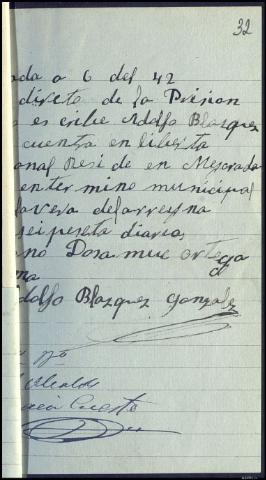 32
ada a 6 del 42
directo de la Prision
es cribe Adolfo Blazquez
cuentra en libirta
onal Resi de en Mejorada
en ter mino municipal
lavera delarreyna
sei peseta diarias
no Dosa muc ortega
na
dolfo Blazquez Gonzalez
Alcalde
Cuesta